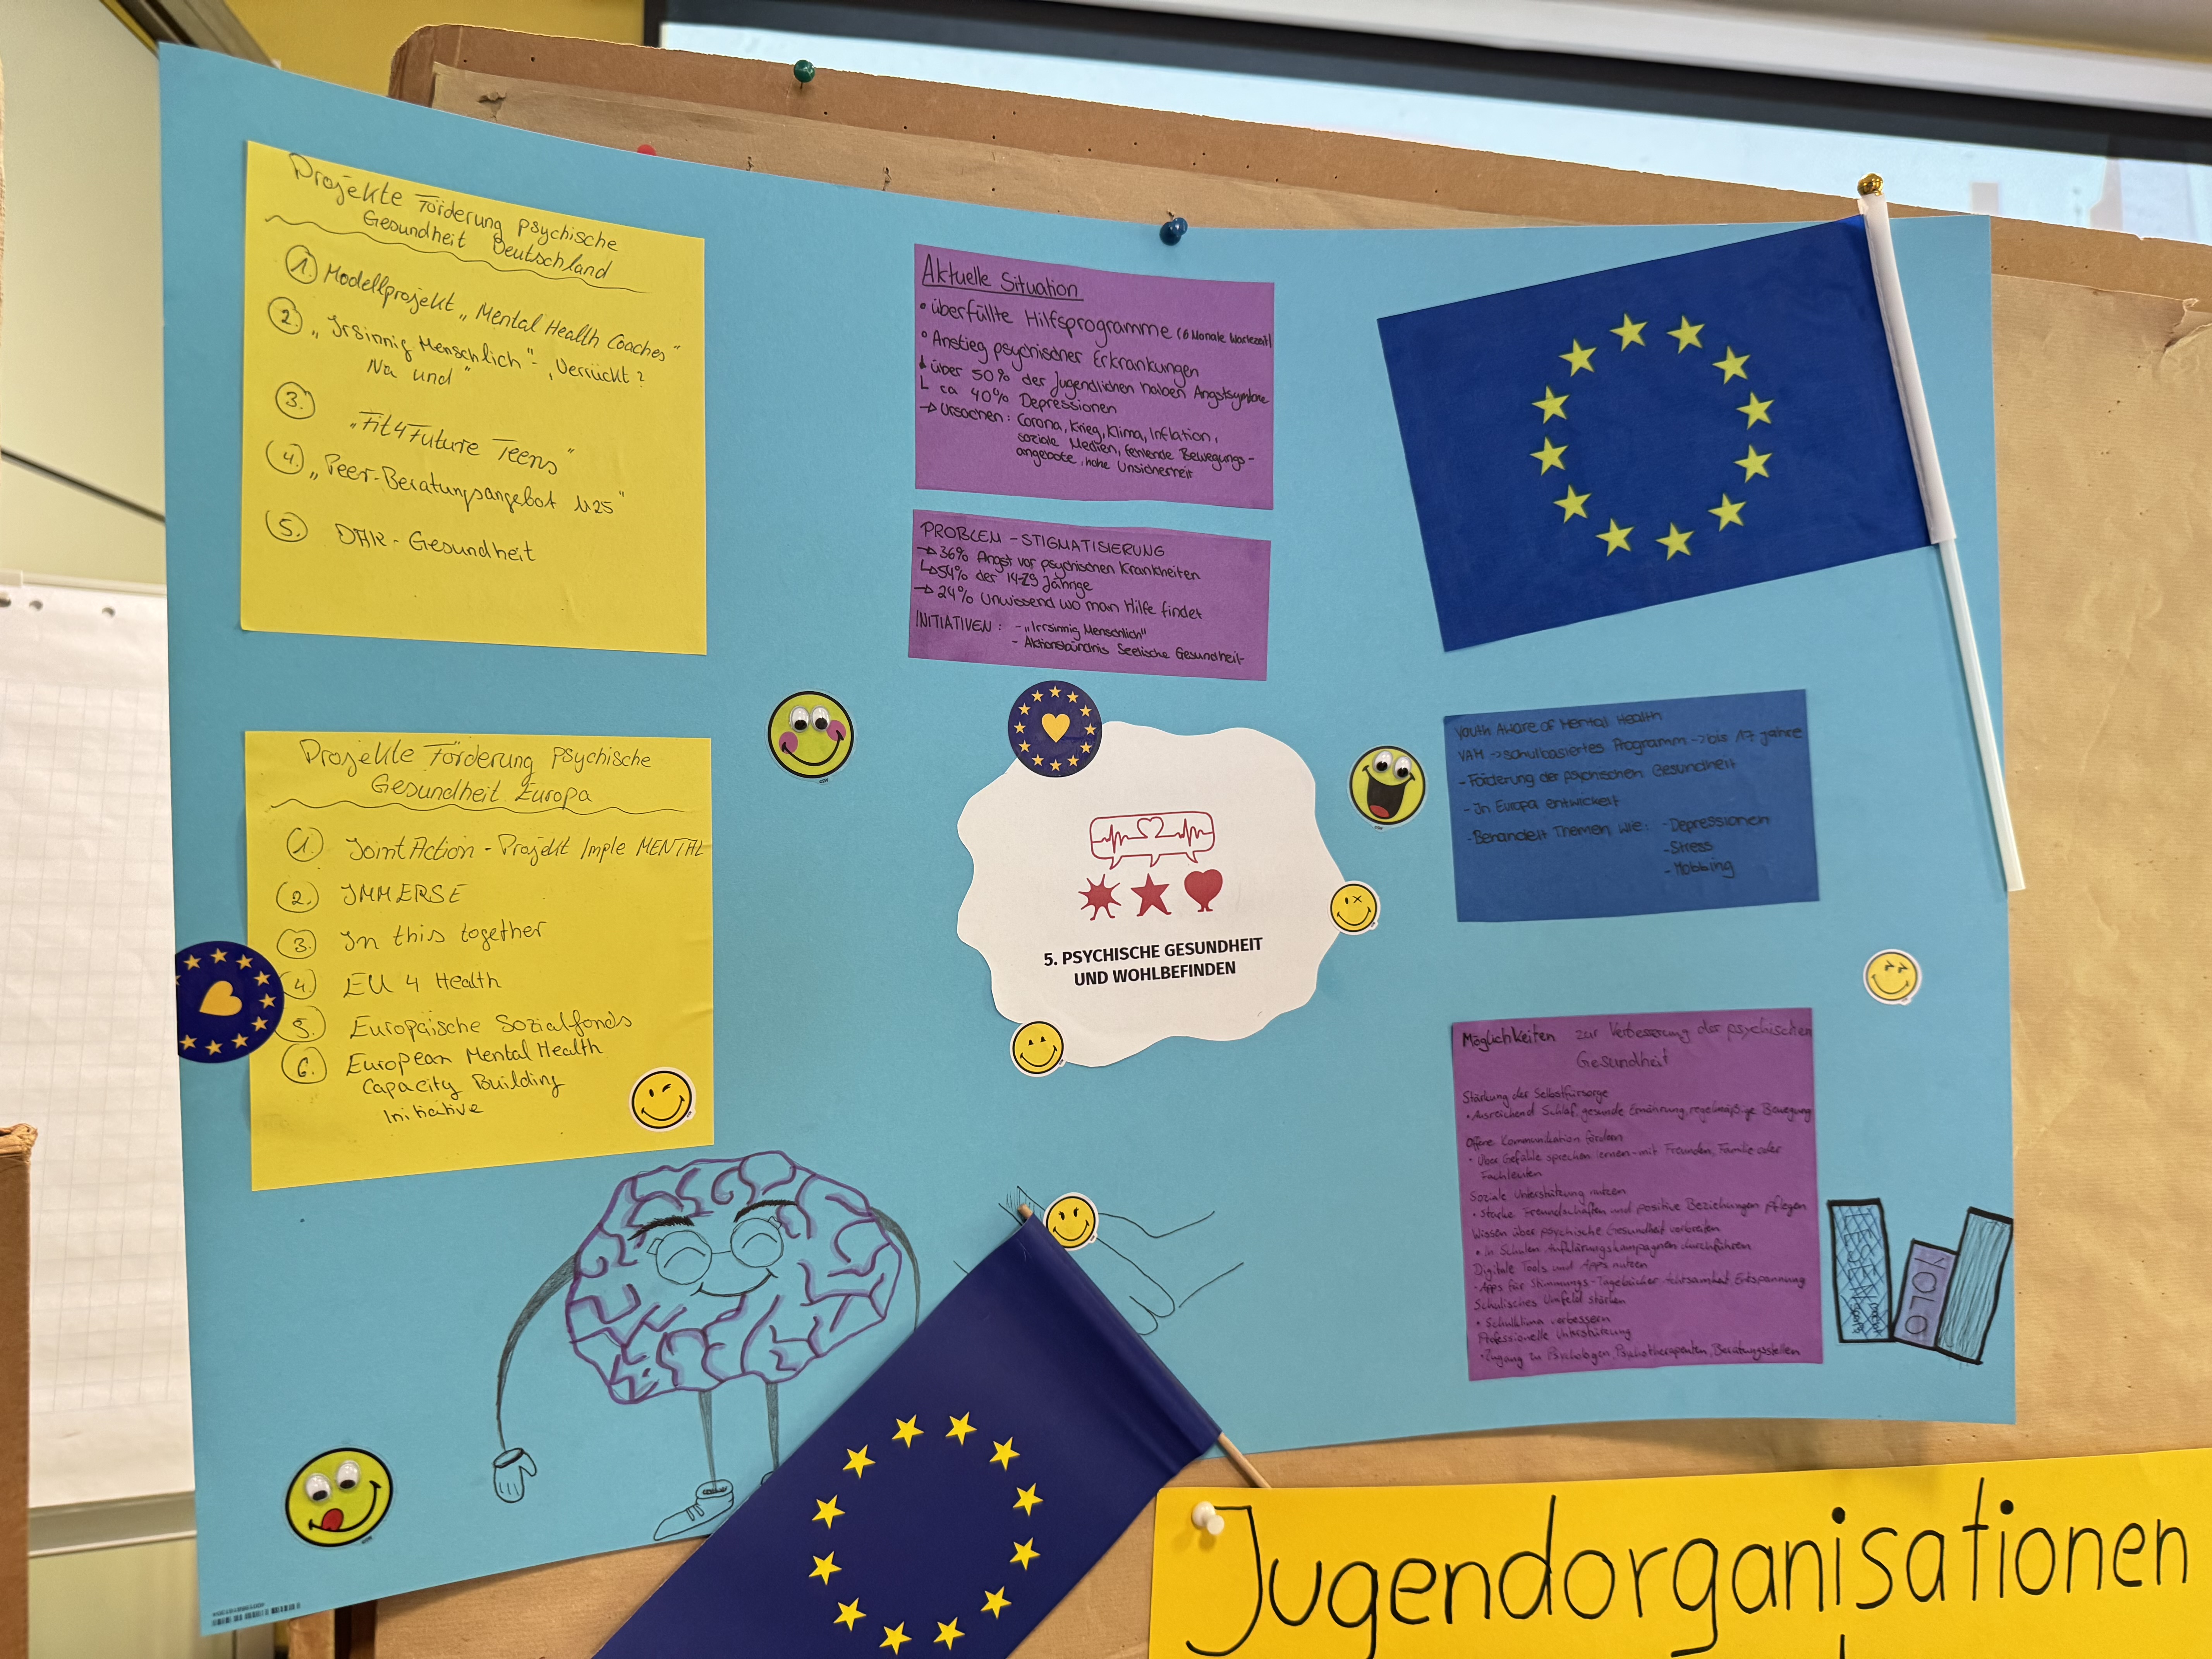 Projekte Förderung psychische
Gesundheit Deutschland
1. Modellprojekt „Mental Health Coaches"
2. „Irsinnig Menschlich" - „Verrückt?
Na und"
3.
„Fit4Future Teens"
4. „Peer-Beratungsangebot U25"
5. DAK - Gesundheit
Projekte Förderung psychische
Gesundheit Europa
1. Joint Action - Projekt Imple MENTAL
2. IMMERSE
3. In this together
4. EU 4 Health
5. Europäische Sozialfonds
6. European Mental Health
Capacity Building
Initiative
Aktuelle Situation
• überfüllte Hilfsprogramme (6 Monate Wartezeit)
• Anstieg psychischer Erkrankungen
über 50% der Jugendlichen haben
ca 40% Depressionen
→ Ursachen: Corona, Krieg, Klima, Inflation,
soziale Medien, fehlende Bewegungs-
angebote, hohe Unsicherheit
PROBLEM - STIGMATISIERUNG
→ 36% Angst vor psychischen Krankheiten
↳ 54% der 14-29 Jährige
→ 24% Unwissend wo man Hilfe findet
INITIATIVEN: - „Irrsinnig Menschlich"
- Aktionsbündnis Seelische Gesundheit
5. PSYCHISCHE GESUNDHEIT
UND WOHLBEFINDEN
Youth Aware of Mental Health
YAM → schulbasiertes Programm → bis 17 Jahre
- Förderung der psychischen Gesundheit
- In Europa entwickelt
- Behandelt Themen wie: - Depressionen
- Stress
- Mobbing
Möglichkeiten zur Verbesserung der psychischen
Gesundheit
Stärkung der Selbstfürsorge
• Ausreichend Schlaf, gesunde Ernährung, regelmäßige Bewegung
Offene Kommunikation fördern
• Über Gefühle sprechen lernen - mit Freunden, Familie oder
Fachleuten
Soziale Unterstützung nutzen
• Starke Freundschaften und positive Beziehungen pflegen
Wissen über psychische Gesundheit verbreiten
• In Schulen Aufklärungskampagnen durchführen
Digitale Tools und Apps nutzen
• Apps für Stimmungs-Tagebücher Achtsamkeit Entspannung
Schulisches Umfeld stärken
• Schulklima verbessern
Professionelle Unterstützung
• Zugang zu Psychologen, Psychotherapeuten, Beratungsstellen
YOLO
Jugendorganisationen